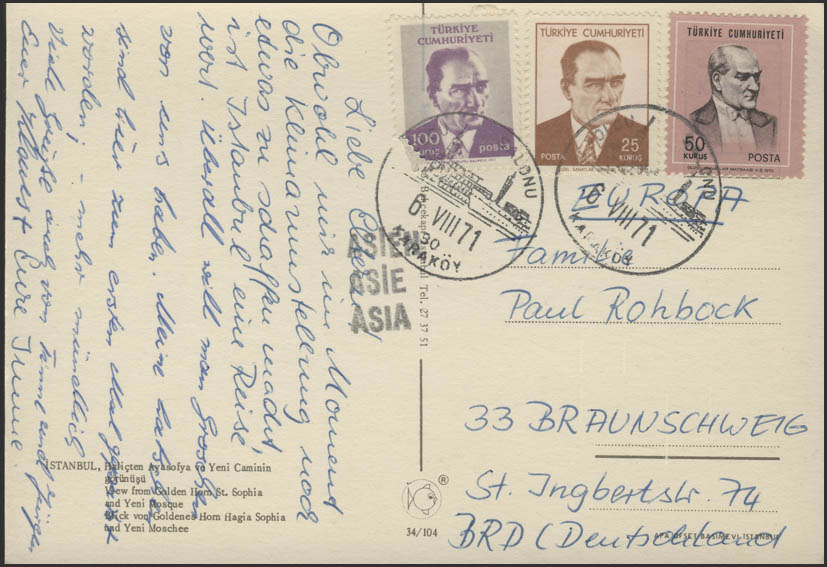 Liebe Eltern!
Obwohl mir im Moment
die Klimaumstellung noch
etwas zu schaffen macht,
ist Istanbul eine Reise
wert. Überall will man Groschen
von uns haben. Meine
sind hier zum ersten Mal
worden! – mehr mündlich
Viele Grüße auch von und Jürgen
Euer Eure
TÜRKİYE
CUMHURİYETİ
100
kuruş posta
TÜRKİYE CUMHURİYETİ
POSTA 25
KURUŞ
TÜRKİYE CUMHURİYETİ
50
KURUŞ POSTA
6 VIII 71
KARAKÖY
6 VIII 71
KARAKÖY
ASIEN
ASIE
ASIA
Tel. 27 37 51
EUROPA
Familie
Paul Rohbock
33 BRAUNSCHWEIG
St. Ingbertstr. 74
BRD (Deutschland
İSTANBUL, Haliçten Ayasofya ve Yeni Caminin
görünüşü
View from Golden Horn St. Sophia
and Yeni Mosque
Blick von Goldenes Horn Hagia Sophia
und Yeni Moschee
®
34/104
APA OFSET BASIMEVİ İSTANBUL